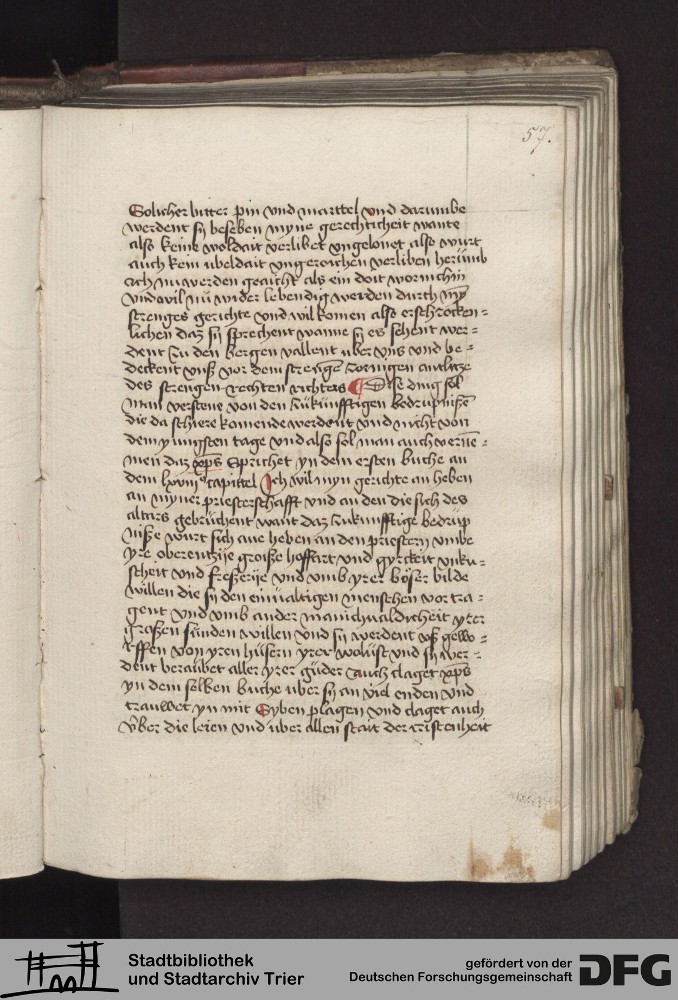 57.
Solicher bitter pin vnd marttel vnd darumbe
werdent sy beseben myne gerechticheit wante
also keine woldait verlibet vngelonet also wurt
auch kein ubeldait vngerochen verliben herumb
ich nu werden geacht als ein doit wormichin
vnd wil nü wider lebendig werden durch myn
strenges gerichte vnd wil komen also erschrocken=
lichen daz sy sprechent wanne sy es sehent wer=
dent zu den bergen vallent uber vns vnd be=
deckent vnß vor dem strenge zornigen antlitze
des strengen rechten richters Dise ding sol
man verstene von den zukunfftigen bedrupnißen
die da schiere komende werdent vnd nicht von
dem yungsten tage vnd also sol man auch verne=
men daz xps Sprichet yn dem ersten buche an
dem lxviij capittel Ich wil myn gerichte an heben
an myner priesterschafft vnd an den die sich des
altars gebruchent want daz zukunfftige bedrup
niße wurt sich ane heben an den priestern vmbe
yre oberentzije große hoffart vnd gyrckeit vnku=
scheit vnd freßerije vnd vmb yrer böser bilde
willen die sy den einualtigen menschen vor tra=
gent vnd vmb ander manichualdicheit yrer
großen sunden willen vnd sy werdent vß gewo=
rffen von yren hüsern yrer wolust vnd sy wer=
dent beraubet aller yrer güder Auch claget xps
yn dem selben buche uber sy an viel enden vnd
trauwet yn mit Syben plagen vnd claget auch
vber die leien vnd uber allen stait der cristenheit
Stadtbibliothek
und Stadtarchiv Trier
gefördert von der
Deutschen Forschungsgemeinschaft
DFG